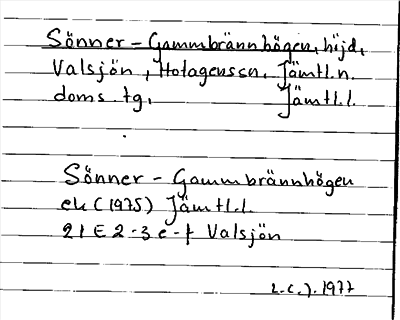 Sönner - Gammbrännhögen, höjd,
Valsjön, Hotagens sn. Jämtl. n.
doms. tg. Jämtl. l.
Sönner - Gammbrännhögen
ek (1975) Jämtl. l.
21 E 2-3 e-f Valsjön
1977